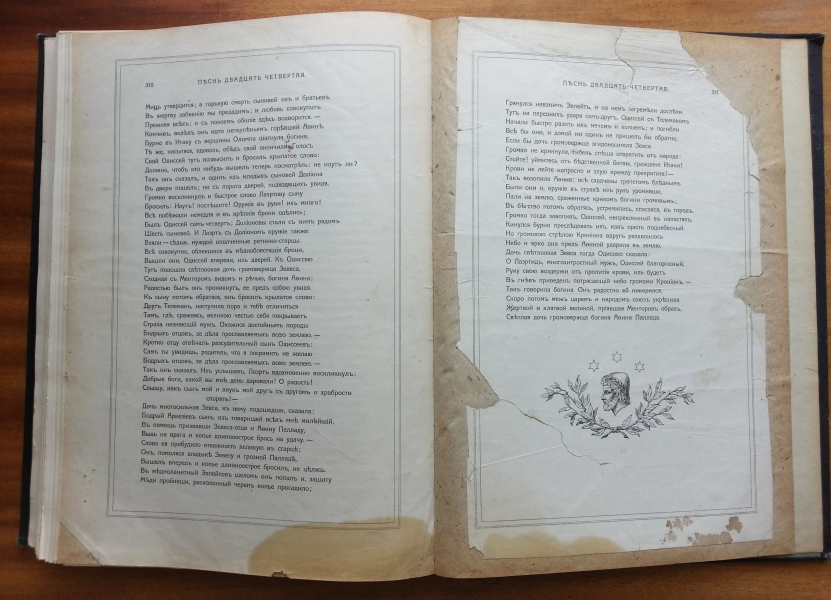 310
ПѢСНЬ ДВАДЦАТЬ ЧЕТВЕРТАЯ.
Миръ утвердится; а горькую смерть сыновей ихъ и братьевъ
Въ жертву забвенію мы предадимъ; и любовь совокупитъ
Прежняя всѣхъ; и съ покоемъ обиліе здѣсь водворится.—
Кончивъ, велѣлъ онъ идти нетерпѣньемъ горѣвшей Аѳинѣ.
Бурно въ Итаку съ вершины Олимпа шагнула богиня.
Тѣ же, насытяся, вдоволь, обѣдъ свой окончили. Голосъ
Свой Одиссей тутъ возвысилъ и бросилъ крылатое слово:
Должно, чтобъ кто нибудь вышелъ теперь посмотрѣть: не идутъ ли?
Такъ онъ сказалъ, и одинъ изъ младыхъ сыновей Доліона
Въ двери пошелъ; но съ порога дверей, подходящихъ увидя,
Громко воскликнулъ и быстрое слово Лаэртову сыну
Бросилъ: Идутъ! Поспѣшите! Оружіе въ руки! ихъ много!
Всѣ побѣжали немедля и въ крѣпкія брони одѣлись;
Былъ Одиссей самъ-четвертъ; Доліоновы стали съ нимъ рядомъ
Шесть сыновей. И Лаэртъ съ Доліономъ оружіе также
Взяли — сѣдые, нуждой ополченные ратники-старцы.
Всѣ совокупно, облекшися въ мѣднoблестящія брони,
Вышли они, Одиссей впереди, изъ дверей. Къ Одиссею
Тутъ подошла свѣтлоокая дочь громовержца Зевеса,
Сходная съ Менторомъ видомъ и рѣчью, богиня Аѳина;
Радостью былъ онъ проникнутъ, ее предъ собою увидя.
Къ сыну потомъ обратяся, онъ бросилъ крылатое слово:
Другъ Телемакъ, наступила пора и тебѣ отличиться
Тамъ, гдѣ, сражаясь, великою честью себя покрываетъ
Страха незнающій мужъ. Окажися достойнымъ породы
Бодрыхъ отцовъ, за дѣла прославляемыхъ всею землею.—
Кротко отцу отвѣчалъ разсудительный сынъ Одиссеевъ:
Самъ ты увидишь, родитель, что я посрамить не желаю
Бодрыхъ отцовъ, за дѣла прославляемыхъ всею землею.—
Такъ онъ сказалъ. Ихъ услышавъ, Лаэртъ вдохновенно воскликнулъ:
Добрые боги, какой вы мнѣ день даровали! О радость!
Слышу, какъ сынъ мой и внукъ мой другъ съ другомъ о храбрости
спорятъ!—
Дочь многосильная Зевса, къ нему подошедши, сказала:
Бодрый Аркезіевъ сынъ, изъ товарищей всѣхъ мнѣ милѣйшій,
Въ помощь призвавши Зевеса-отца и Аѳину Палладу,
Выдь на врага и копье длиннооострое брось на удачу.—
Слово ея пробудило отважность великую въ старцѣ;
Онъ, помолясь владыкѣ Зевесу и грозной Палладѣ,
Вышелъ впередъ и копье длинноострое бросилъ, не цѣлясь.
Въ мѣдноланитный Эвпейтовъ шеломъ онъ попалъ и, защиту
Мѣди пробивши, расколонный черепъ копье просадило;
ПѢСНЬ ДВАДЦАТЬ ЧЕТВЕРТАЯ.
311
Грянулся навзничь Эвпейтъ, и на немъ загремѣли доспѣхи.
Тутъ на переднихъ ударя самъ-другъ, Одиссей съ Телемакомъ
Начали быстро разить ихъ мечомъ и копьемъ; и погибли
Всѣ бы они, и домой ни одинъ не пришелъ бы обратно,
Если бы дочь громовержца эгидоносителя Зевса
Громко не крикнула, гибель спѣша отвратить отъ народа:
Стойте! уймитесь отъ бѣдственной битвы, граждане Итаки!
Крови не лейте напрасно и злую вражду прекратите!—
Такъ возопила Аѳина: всѣ схвачены трепетомъ блѣднымъ
Были они и, оружіе въ страхѣ изъ рукъ уронивши,
Пали на землю, сраженные крикомъ богини громовымъ;
Въ бѣгство потомъ обратясь, устремились, спасаяся, въ городъ.
Громко тогда завопивъ, Одиссей, непреклонный въ напастяхъ,
Кинулся бурно преслѣдовать ихъ, какъ орелъ поднебесный.
Но громовою стрѣлою Кроніонъ вдругъ разразилося
Небо и ярко она предъ Аѳиной ударила въ землю.
Дочь свѣтлоокая Зевса тогда Одиссею сказала:
О Лаэртидъ, многохитростный мужъ, Одиссей благородный,
Руку свою воздержи отъ пролитія крови, иль будетъ
Въ гнѣвъ приведенъ потрясающій небо грозами Кроніонъ.—
Такъ говорила богиня. Онъ радостно ей покорился.
Скоро потомъ межъ царемъ и народомъ союзъ укрѣпила
Жертвой и клятвой великой, пріявшая Менторовъ образъ,
Свѣтлая дочь громовержца богиня Аѳина Паллада.